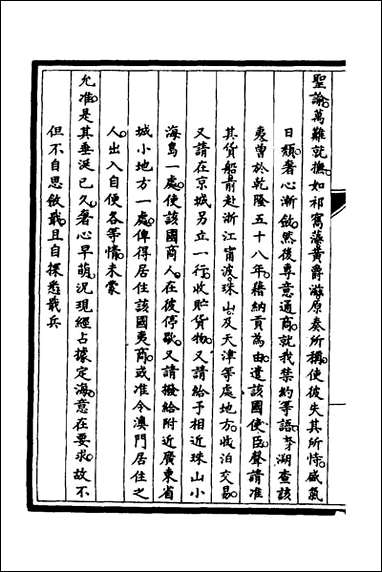 聖諭萬難就撫如祁寯藻黃爵滋原奏所稱使彼失其所恃威氣
日頹奢心漸斂然後尊意通商就我禁約等語努湖查該
夷曾於乾隆五十八年藉納貢為由遣該國使臣聲請准
其貨船前赴浙江甯波珠山及天津等處地方收泊交易
又請在京城另立一行收貯貨物又請給予相近珠山小
海島一處使該國商人在彼停歇又請撥給附近廣東省
城小地方一處俾得居住該國夷商或准令澳門居住之
人出入自便各等情未蒙
允准是其垂涎已久奢心早萌況現經占據定海意在要求故不
但不自思斂戢且自探悉戢兵